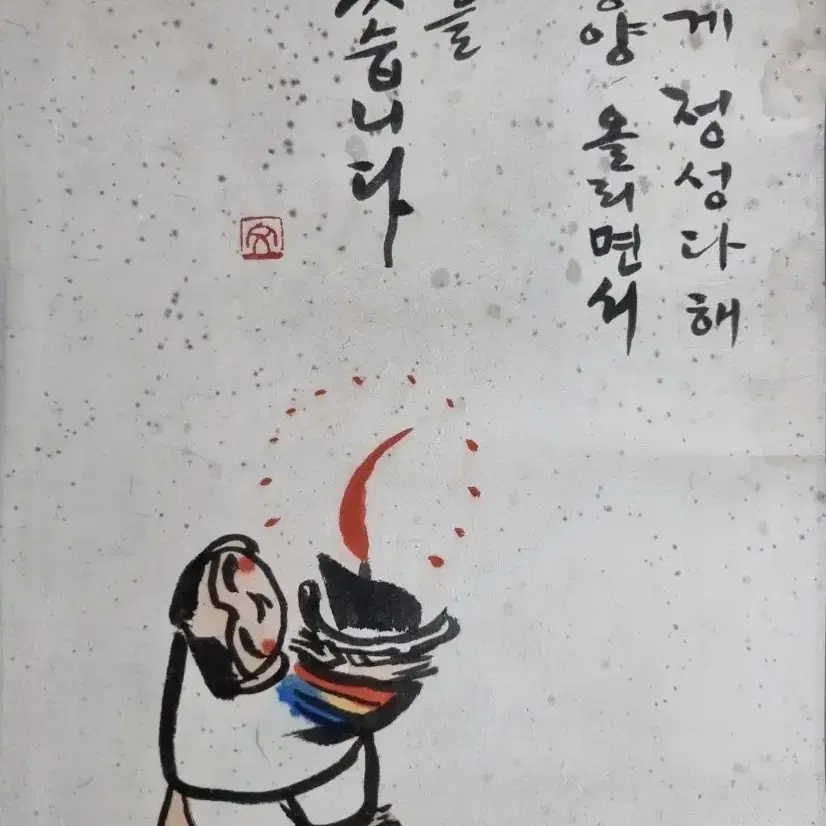 게 정성다해
양 올리면서
를
습니다